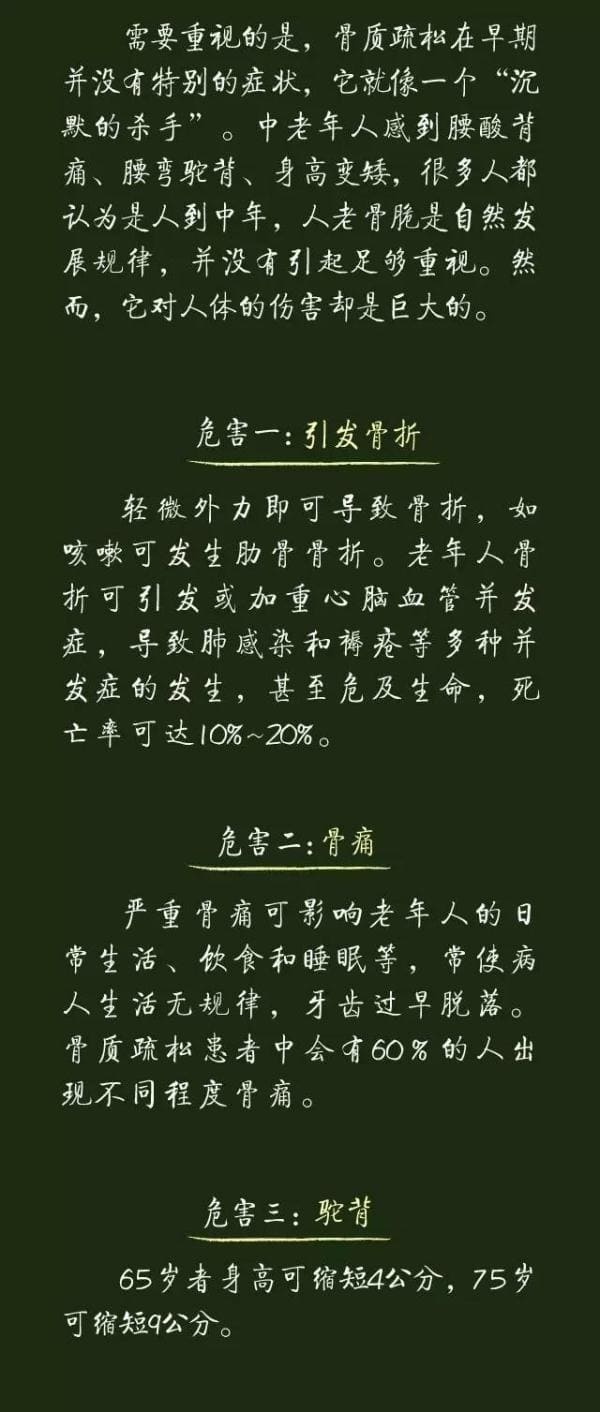 需要重视的是，骨质疏松在早期
并没有特别的症状，它就像一个“沉
默的杀手”。中老年人感到腰酸背
痛、腰弯驼背、身高变矮，很多人都
认为是人到中年，人老骨脆是自然发
展规律，并没有引起足够重视。然
而，它对人体的伤害却是巨大的。
危害一：引发骨折
轻微外力即可导致骨折，如
咳嗽可发生肋骨骨折。老年人骨
折可引发或加重心脑血管并发
症，导致肺感染和褥疮等多种并
发症的发生，甚至危及生命，死
亡率可达10%~20%。
危害二：骨痛
严重骨痛可影响老年人的日
常生活、饮食和睡眠等，常使病
人生活无规律，牙齿过早脱落。
骨质疏松患者中会有60%的人出
现不同程度骨痛。
危害三：驼背
65岁者身高可缩短4公分，75岁
可缩短9公分。